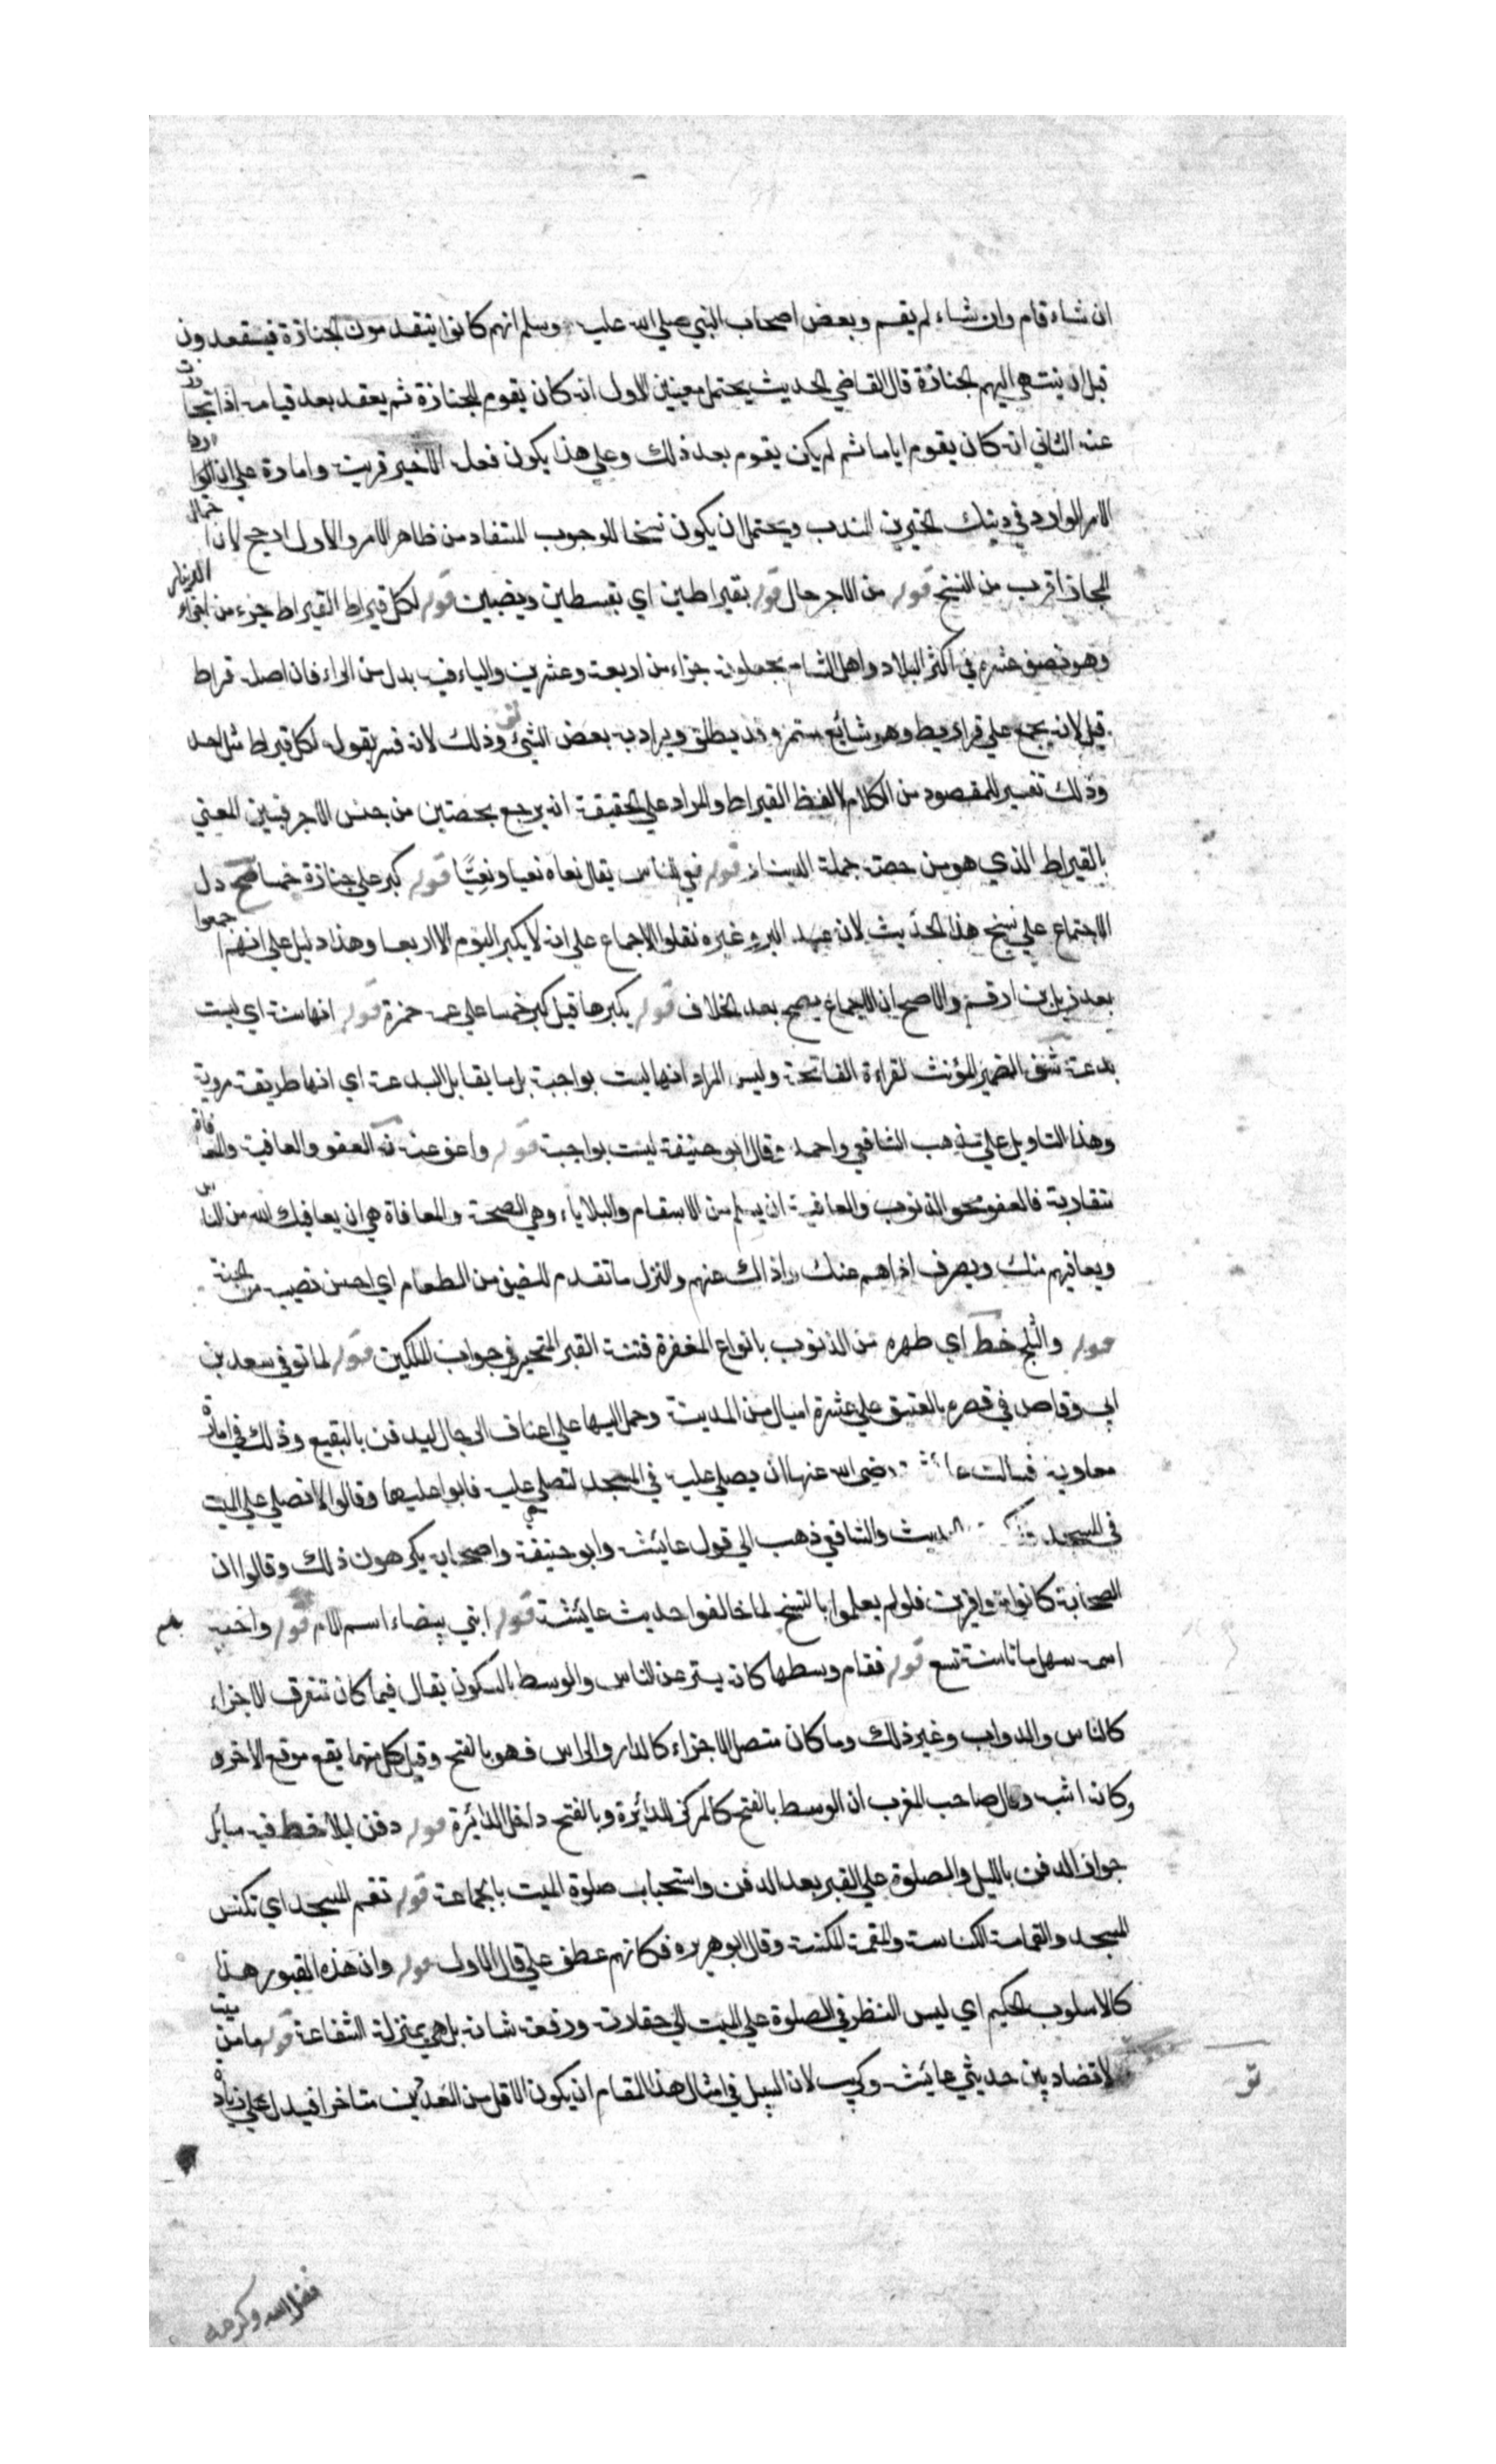 ان شاء قام وان شاء لم يقم وبعض اصحاب النبي صلي الله عليه وسلم انهم كانوا يتقدمون الجنازة فيقعدون
قبل ان ينتهي اليهم الجنازة قال القاضي الحديث يحتمل معنيين الاول انه كان يقوم للجنازة ثم يقعد بعد قيامه اذا تجاوزت
عنه الثاني انه كان يقوم اياما ثم لم يكن يقوم بعد ذلك وعلي هذا يكون فعله الاخير قرينة وامارة علي ان
الامر الوارد في ذينك الخبرين للندب ويحتمل ان يكون نسخا للوجوب المستفاد من ظاهر الامر والاول ارجح لان احتمال
المجاز اقرب من النسخ قوله من الاجر حال قوله بقيراطين اي بقسطين ونصيبين قوله لكل قيراط القيراط جزء من اجزاء الدينار
وهو نصف عشره في اكثر البلاد واهل الشام يجعلونه جزاء من اربعة وعشرين والياء فيه بدل من الراء فان اصله قراط
قيل لانه يجمع علي قراريط وهو شايع مستمر وقد يطلق ويراد به بعض الشيئ وذلك لانه فسر بقوله لكل قيراط مثل احد
وذلك تفسير للمقصود من الكلام لا لفظ القيراط والمراد علي الحقيقة انه يرجع بحصتين من جنس الاجر فبين المعني
بالقيراط الذي هو من حصة جملة الدينار قوله نعي للناس يقال نعاه نعيا ونعيًّا قوله كبر علي جنازة خمسا دل
الاجتماع علي نسخ هذا الحديث لان عبد البر وغيره نقلوا الاجماع علي انه لا يكبر اليوم الا اربعا وهذا دليل علي انهم اجمعوا
بعد زيد بن ارقم والاصح ان الاجماع يصح بعد الخلاف قوله يكبرها قيل كبر خمسا علي عمه حمزة قوله انها سنة اي ليست
بدعة الضمير المؤنث لقراءة الفاتحة وليس المراد انها ليست بواجبة بل ما يقابل البدعة اي انها طريقة مروية
وهذا التاويل علي مذهب الشافعي واحمد وقال ابو حنيفة ليست بواجبة قوله واعف عنه العفو والعافية والمعافاة
متقاربة فالعفو محو الذنوب والعافية ان يسلم من الاسقام والبلاياء وهي الصحة والمعافاة هي ان يعافيك الله من الناس
ويعافيهم منك ويصرف اذاهم عنك واذاك عنهم والنزل ما تقدم للضيف من الطعام اي احسن نصيبه من الجنة
قوله والثلج خط اي طهره من الذنوب بانواع المغفرة فتنة القبر التحير في جواب الملكين قوله لما توفي سعد بن
ابي وقاص في قصره بالعقيق علي عشرة اميال من المدينة وحمل اليها علي اعناق الرجال ليدفن بالبقيع وذلك في امارة
معاوية فسالت عائشة رضي الله عنها ان يصلي عليه في المسجد لتصلي عليه فابوا عليها وقالوا لا تصلي علي الميت
في المسجد الحديث والشافعي ذهب الي قول عايشة وابو حنيفة واصحابه يكرهون ذلك وقالوا ان
الصحابة كانوا متوافرين فلو لم يعلموا بالنسخ لما خالفوا حديث عائشة قوله ابني بيضاء اسم الام قوله واخيه
اسمه سهل ماتا سنة تسع قوله فقام وسطها كانه يستر عن الناس والوسط بالسكون يقال فيما كان متفرق الاجزاء
كالناس والدواب وغير ذلك وما كان متصل الاجزاء كالدار والراس فهو بالفتح وقيل كل منهما يقع موقع الاخر
وكانه اشبه وقال صاحب المغرب ان الوسط بالفتح كالمركز للدائرة وبالفتح داخل الدائرة قوله دفن ليلا خط فيه مسائل
جواز الدفن بالليل والصلوة علي القبر بعد الدفن واستحباب صلوة الميت بالجماعة قوله تقم المسجد اي تكنس
المسجد والقمامة الكناسة والمقمة المكنسة وقال ابو هريره فكانهم عطف علي قال الاول قوله وان هذه القبور هذا
كالاسلوب الحكيم اي ليس النظر في الصلوة علي الميت الي حقارته ورفعة شانه بل هي بمنزلة الشفاعة قوله ما من ميت
لا تضاد بين حديثي عايشة وكريب لان السبيل في امثال هذا المقام ان يكون الاقل من العددين متاخرا فيدل علي زيادة
فضل الله وكرمه